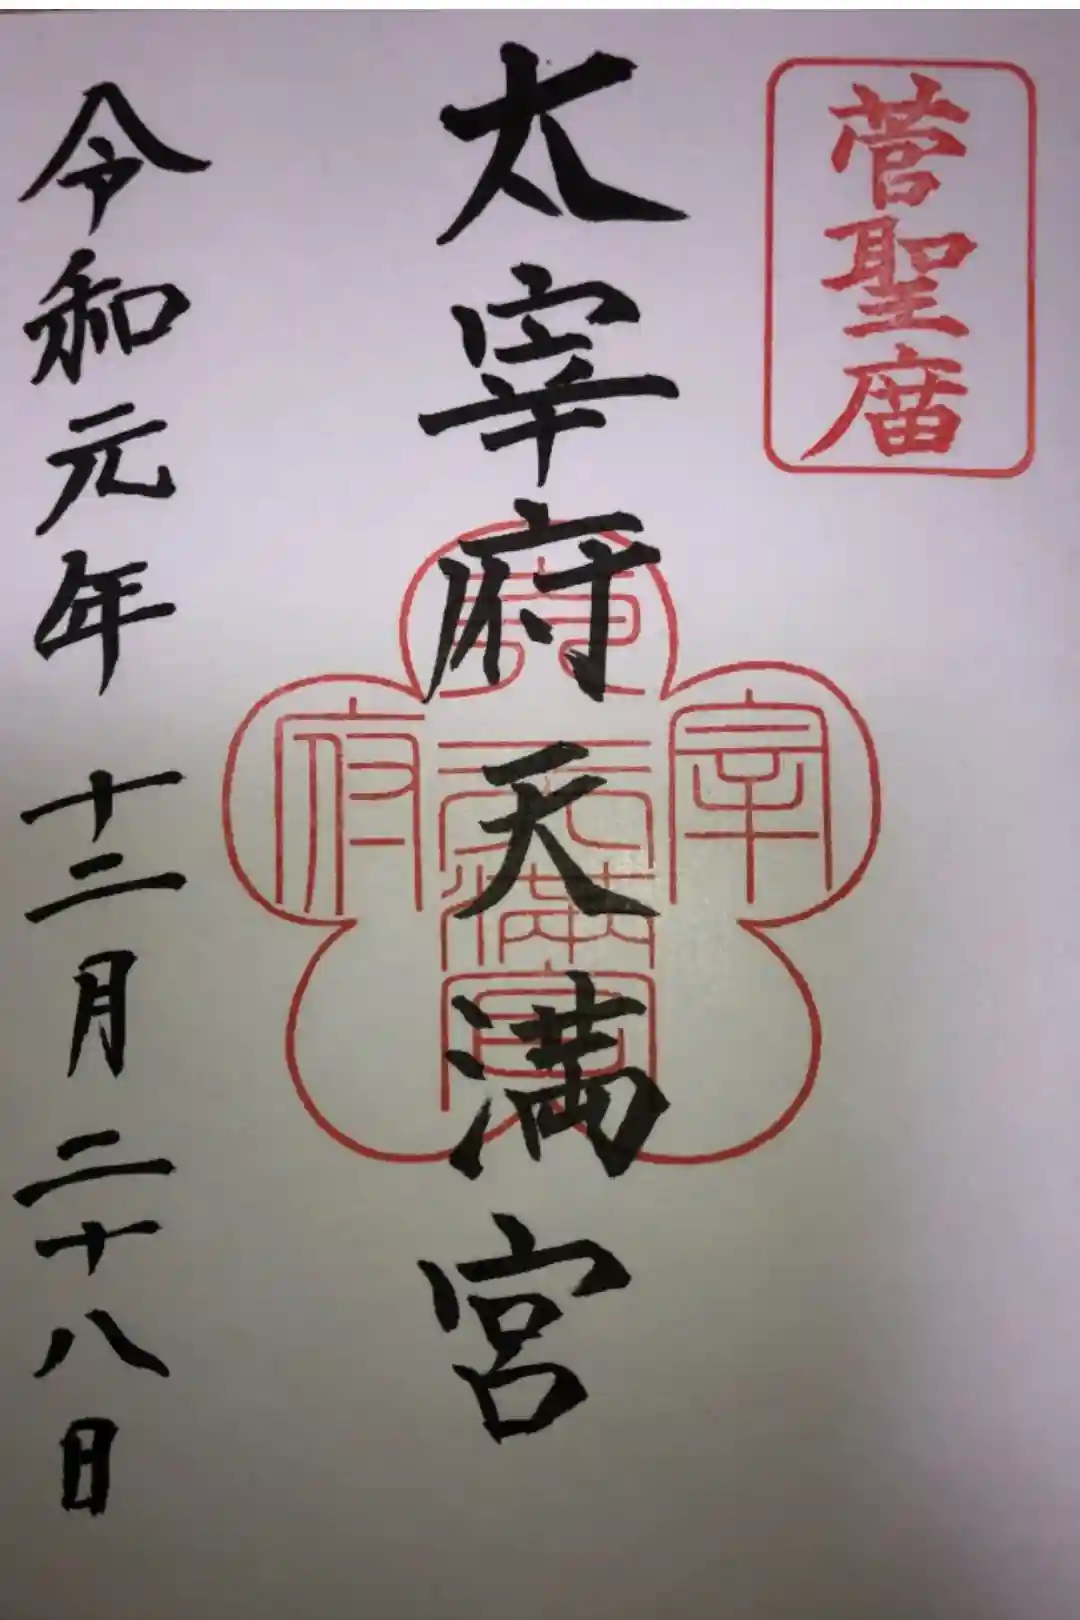 菅聖庿
太宰府天満宮
宰
府
天満宮
令和元年十二月二十八日